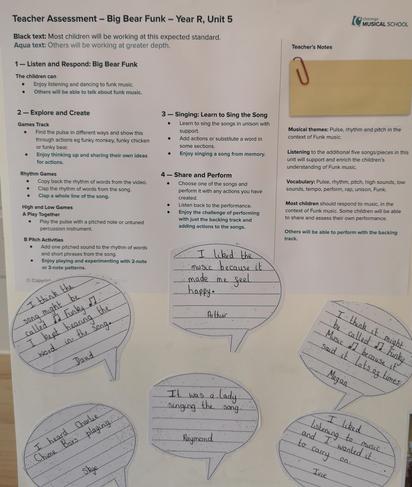 Teacher Assessment – Big Bear Funk – Year R, Unit 5
MUSICAL SCHOOL
Black text: Most children will be working at this expected standard.
Aqua text: Others will be working at greater depth.
1 — Listen and Respond: Big Bear Funk
The children can
• Enjoy listening and dancing to funk music.
• Others will be able to talk about funk music.
2 — Explore and Create
Games Track
• Find the pulse in different ways and show this
through actions eg funky monkey, funky chicken
or funky bear.
• Enjoy thinking up and sharing their own ideas
for actions.
Rhythm Games
• Copy back the rhythm of words from the video.
• Clap the rhythm of words from the song.
• Clap a whole line of the song.
High and Low Games
A Play Together
• Play the pulse with a pitched note or untuned
percussion instrument.
B Pitch Activities
• Add one pitched sound to the rhythm of words
and short phrases from the song.
• Enjoy playing and experimenting with 2-note
or 3-note patterns.
© Copyright
3 — Singing: Learn to Sing the Song
• Learn to sing the songs in unison with
support.
• Add actions or substitute a word in
some sections.
• Enjoy singing a song from memory.
4 — Share and Perform
• Choose one of the songs and
perform it with any actions you have
created.
• Listen back to the performance.
• Enjoy the challenge of performing
with just the backing track and
adding actions to the songs.
Teacher's Notes
Musical themes: Pulse, rhythm and pitch in the
context of Funk music.
Listening to the additional five songs/pieces in this
unit will support and enrich the children's
understanding of Funk music.
Vocabulary: Pulse, rhythm, pitch, high sounds, low
sounds, tempo, perform, rap, unison, Funk.
Most children should respond to music, in the
context of Funk music. Some children will be able
to share and assess their own performance.
Others will be able to perform with the backing
track.
I think the
song might be
called ♫ Funky ♫
I kept hearing the
word in the song.
David
I liked the
music because it
made me feel
happy.
Arthur
I think it might
be called ♫ Funky
Music ♫ because it
said it lots of times
Megan
I heard Charlie
Chino Bars playing.
Skye
It was a lady
singing the song.
Raymond
I liked
listening to music
and I wanted it
to carry on